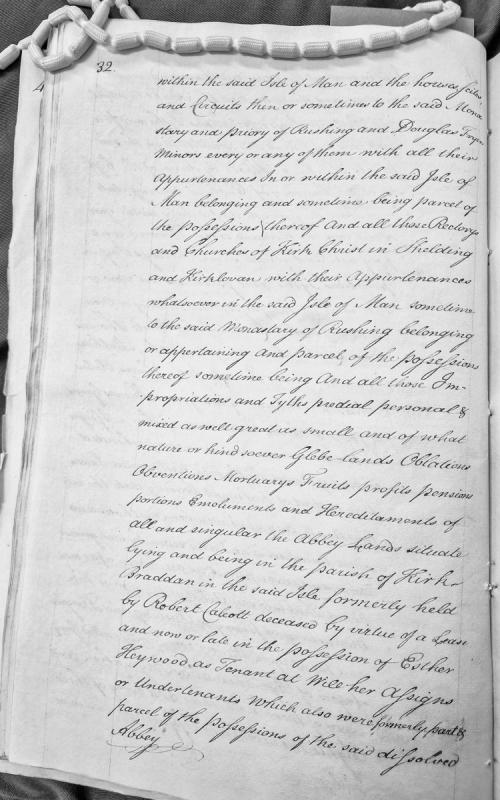 32.
4
within the said Isle of Man and the houses scites
and Circuits then or sometimes to the said Mona
stary and priory of Rushing and Douglas Fryer
Minors every or any of them with all their
Appurtenances In or within the said Isle of
Man belonging and sometime being parcel of
the possessions thereof And all those Rectorys
and Churches of Kirk Christ in Shelding
and Kirklovan with their Appurtenances
whatsoever in the said Isle of Man sometime
to the said Monastary of Rushing belonging
or appertaining and parcel of the possessions
thereof sometime being And all those Im-
-propriations and Tyths predial personal &
mixed as well great as small and of what
nature or kind soever Glebe-lands Oblations
Obventions Mortuarys Fruits profits pensions
portions Emoluments and Hereditaments of
all and singular the Abbey Lands situate
lying and being in the parish of Kirk-
Braddan in the said Isle formerly held
by Robert Calcott deceased by virtue of a Lease
and now or late in the possession of Esther
Heywood as Tenant at Will her Assigns
or Undertenants which also were formerly part &
parcel of the possessions of the said dissolved
Abbey